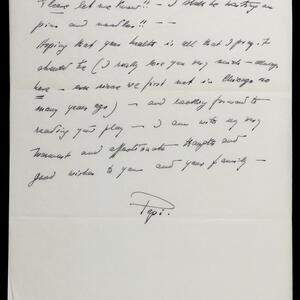 Please let me know!! - I shall be waiting on
pins and needles!! --
Hoping that your health is all that I pray it
should be (I really love you very much - always
have - ever since we first met in Chicago so
many years ago) - and looking forward to
reading your play - I am with my very
warmest and affectionate thoughts and
good wishes to you and your family -
Pepi.